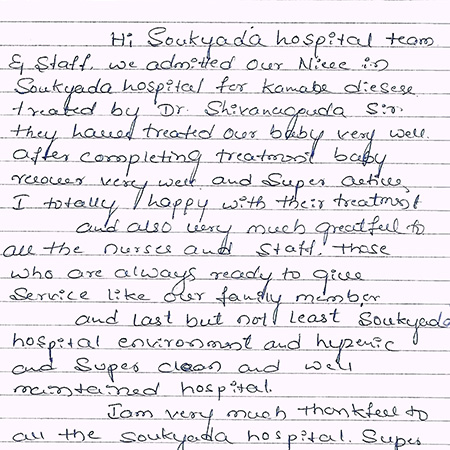 Hi Soukyada hospital team
& Staff. we admitted our Niece in
Soukyada hospital for Kamabe diesese
treated by Dr. Shivanagouda Sir.
they haved treated our baby very well.
after completing treatment baby
recover very well and Super active,
I totally happy with their treatment
and also very much greatfull to
all the nurses and Staff. those
who are always ready to give
Service like our family member,
and last but not least Soukyada
hospital environment and hyzenic
and Super clean and well
maintained hospital.
I am very much thankfull to
all the Soukyada hospital. Super